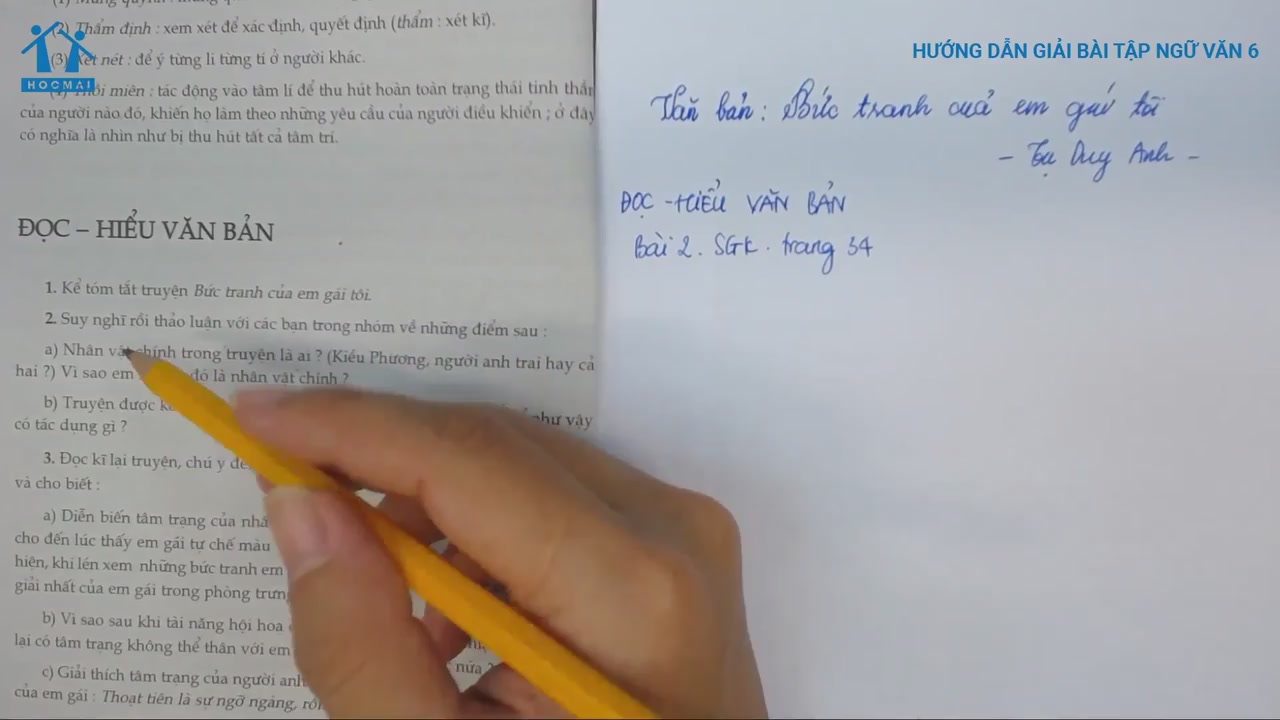 (2) Thẩm định : xem xét để xác định, quyết định (thẩm : xét kĩ).
(3) Xét nét : để ý từng li từng tí ở người khác.
HOCMAI
miên : tác động vào tâm lí để thu hút hoàn toàn trạng thái tinh thần
của người nào đó, khiến họ làm theo những yêu cầu của người điều khiển ; ở đây
có nghĩa là nhìn như bị thu hút tất cả tâm trí.
ĐỌC – HIỂU VĂN BẢN
1. Kể tóm tắt truyện Bức tranh của em gái tôi.
2. Suy nghĩ rồi thảo luận với các bạn trong nhóm về những điểm sau :
a) Nhân vật chính trong truyện là ai ? (Kiều Phương, người anh trai hay cả
hai ?) Vì sao em đó là nhân vật chính ?
b) Truyện được như vậy
có tác dụng gì ?
3. Đọc kĩ lại truyện, chú ý
và cho biết :
a) Diễn biến tâm trạng của
cho đến lúc thấy em gái tự chế màu
hiện, khi lén xem những bức tranh em
giải nhất của em gái trong phòng
b) Vì sao sau khi tài năng hội hoạ
lại có tâm trạng không thể thân với em nữa ?
c) Giải thích tâm trạng của người anh
của em gái : Thoạt tiên là sự ngỡ ngàng, rồi
HƯỚNG DẪN GIẢI BÀI TẬP NGỮ VĂN 6
Văn bản : Bức tranh của em gái tôi
- Tạ Duy Anh -
ĐỌC - HIỂU VĂN BẢN
Bài 2. SGK. trang 34